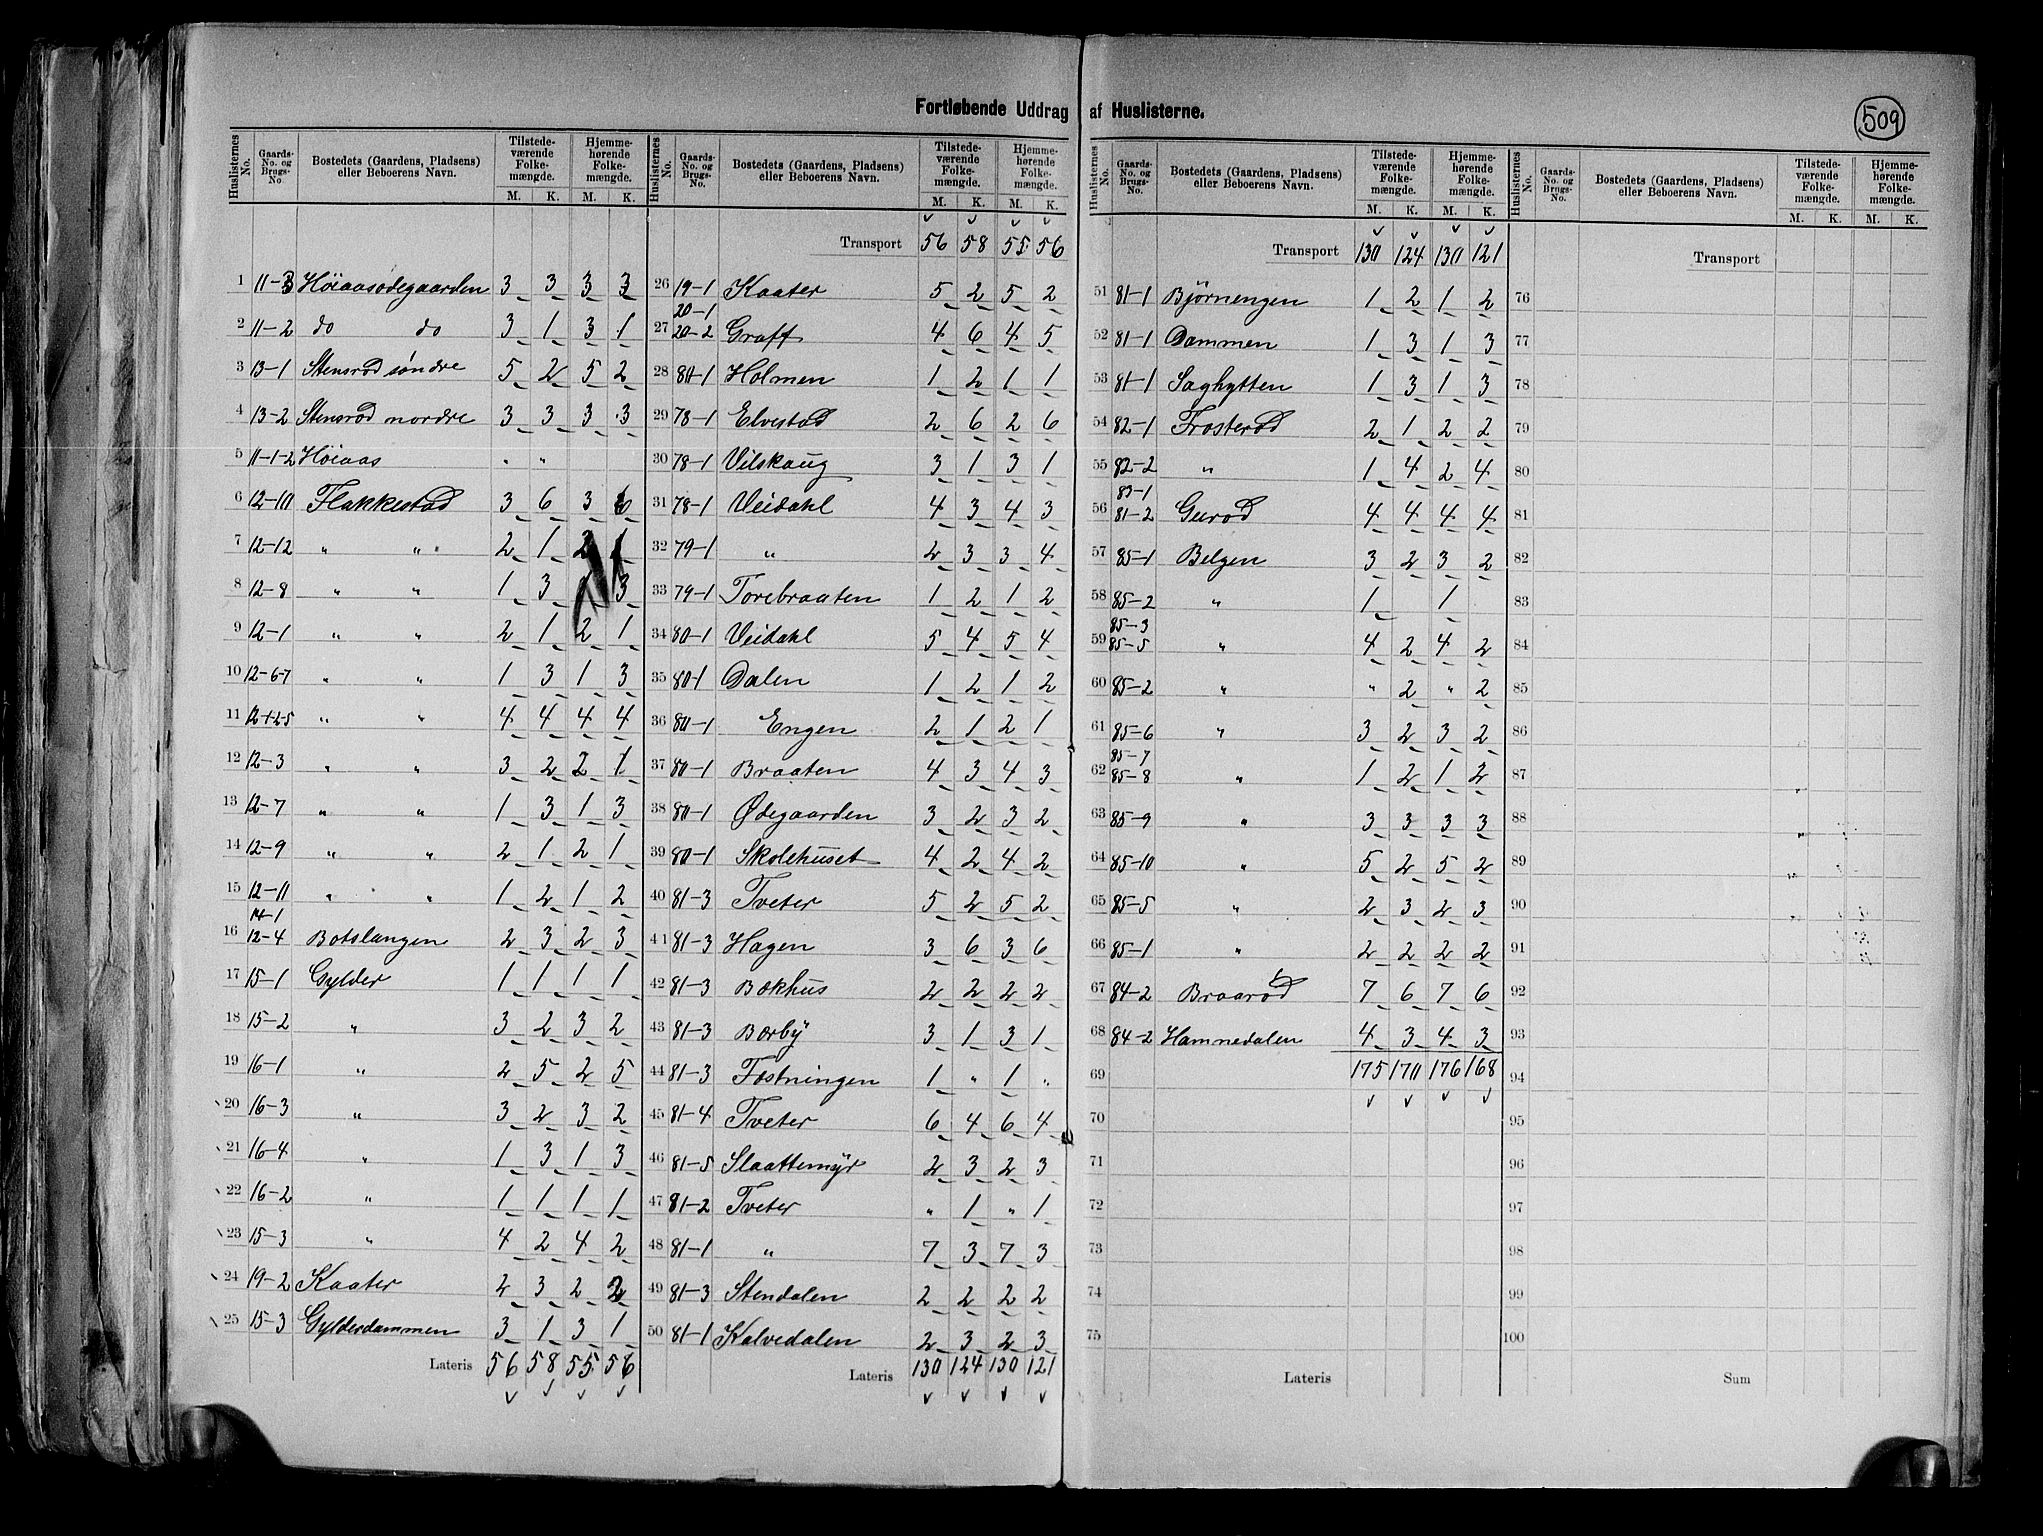 Fortløbende Uddrag af Huslisterne.
509
Huslisternes No. Gaards- No. og Brugs- No. Bostedets (Gaardens, Pladsens) eller Beboerens Navn. Tilstede-værende Folke-mængde. M. K. Hjemme-hørende Folke-mængde. M. K.
1 11-3 Höiaasødegaarden 3 3 3 3
2 11-2 do do 3 1 3 1
3 13-1 Stensrød søndre 5 2 5 2
4 13-2 Stensrød nordre 3 3 3 3
5 11-1-2 Höiaas " "
6 12-10 Flakkestad 3 6 3 6
7 12-12 " " 2 1 2 1
8 12-8 " " 1 3 1 3
9 12-1 " " 2 1 2 1
10 12-6-7 " " 1 3 1 3
11 12-1-2-5 " " 4 4 4 4
12 12-3 " " 3 2 2 1
13 12-7 " " 1 3 1 3
14 12-9 " " 2 1 2 1
15 12-11 " " 1 2 1 2
14-1
16 12-4 Botslangen 2 3 2 3
17 15-1 Gylder 1 1 1 1
18 15-2 " 3 2 3 2
19 16-1 " 2 5 2 5
20 16-3 " 3 2 3 2
21 16-4 " 1 3 1 3
22 16-2 " 1 1 1 1
23 15-3 " 4 2 4 2
24 19-2 Kaater 2 3 2 2
25 15-3 Gylderdammen 3 1 3 1
Lateris 56 58 55 56
Huslisternes No. Gaards- No. og Brugs- No. Bostedets (Gaardens, Pladsens) eller Beboerens Navn. Tilstede-værende Folke-mængde. M. K. Hjemme-hørende Folke-mængde. M. K.
Transport 56 58 55 56
26 19-1 Kaater 5 2 5 2
20-1
27 20-2 Graff 4 6 4 5
28 80-1 Holmen 1 2 1 1
29 78-1 Elvestad 2 6 2 6
30 78-1 Vilskaug 3 1 3 1
31 78-1 Veidahl 4 3 4 3
32 79-1 " 2 3 3 4
33 79-1 Torebraaten 1 2 1 2
34 80-1 Veidahl 5 4 5 4
35 80-1 Dalen 1 2 1 2
36 80-1 Engen 2 1 2 1
37 80-1 Braaten 4 3 4 3
38 80-1 Ødegaarden 3 2 3 2
39 80-1 Skolehuset 4 2 4 2
40 81-3 Tveter 5 2 5 2
41 81-3 Hagen 3 6 3 6
42 81-3 Bækhus 2 2 2 2
43 81-3 Bærbÿ 3 1 3 1
44 81-3 Fæstningen 1 " 1 "
45 81-4 Tveter 6 4 6 4
46 81-5 Slaattemÿr 2 3 2 3
47 81-2 Tveter " 1 " 1
48 81-1 " 7 3 7 3
49 81-3 Stendalen 2 2 2 2
50 81-1 Kalvedalen 2 3 2 3
Lateris 130 124 130 121
Huslisternes No. Gaards- No. og Brugs- No. Bostedets (Gaardens, Pladsens) eller Beboerens Navn. Tilstede-værende Folke-mængde. M. K. Hjemme-hørende Folke-mængde. M. K.
Transport 130 124 130 121
51 81-1 Björnengen 1 2 1 2
52 81-1 Dammen 1 3 1 3
53 81-1 Saghytten 1 3 1 3
54 82-1 Frosterød 2 1 2 2
55 82-2 " 1 4 2 4
83-1
56 81-2 Gurød 4 4 4 4
57 85-1 Belgen 3 2 3 2
58 85-2 " 1 1
85-3
59 85-5 " 4 2 4 2
60 85-2 " " 2 " 2
61 85-6 " 3 2 3 2
85-7
62 85-8 " 1 2 1 2
63 85-9 " 3 3 3 3
64 85-10 " 5 2 5 2
65 85-5 " 2 3 2 3
66 85-1 " 2 2 2 2
67 84-2 Braarød 7 6 7 6
68 84-2 Hamnedalen 4 3 4 3
69 175 170 176 168
70
71
72
73
74
75
Lateris
Huslisternes No. Gaards- No. og Brugs- No. Bostedets (Gaardens, Pladsens) eller Beboerens Navn. Tilstede-værende Folke-mængde. M. K. Hjemme-hørende Folke-mængde. M. K.
Transport
76
77
78
79
80
81
82
83
84
85
86
87
88
89
90
91
92
93
94
95
96
97
98
99
100
Sum